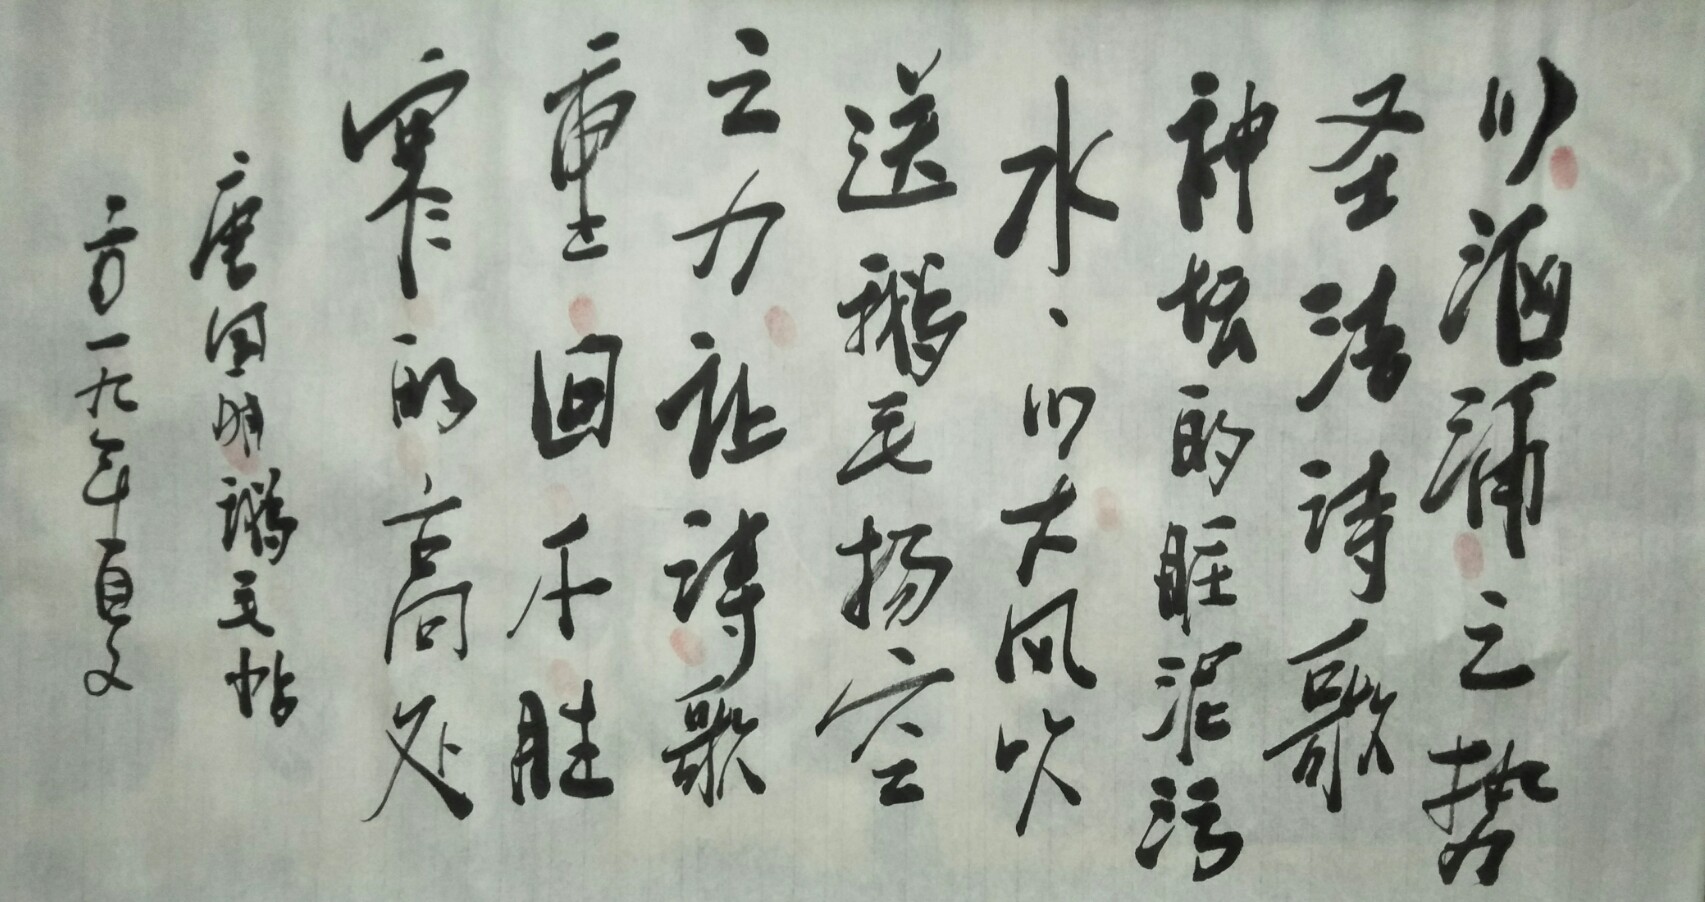 以汹涌之势
圣洁诗歌
神坛的脏泥污
水、以大风吹
送鹅毛扬空
之力让诗歌
重回不胜
寒的高处
唐国明鹅毛帖
二〇一九年夏文